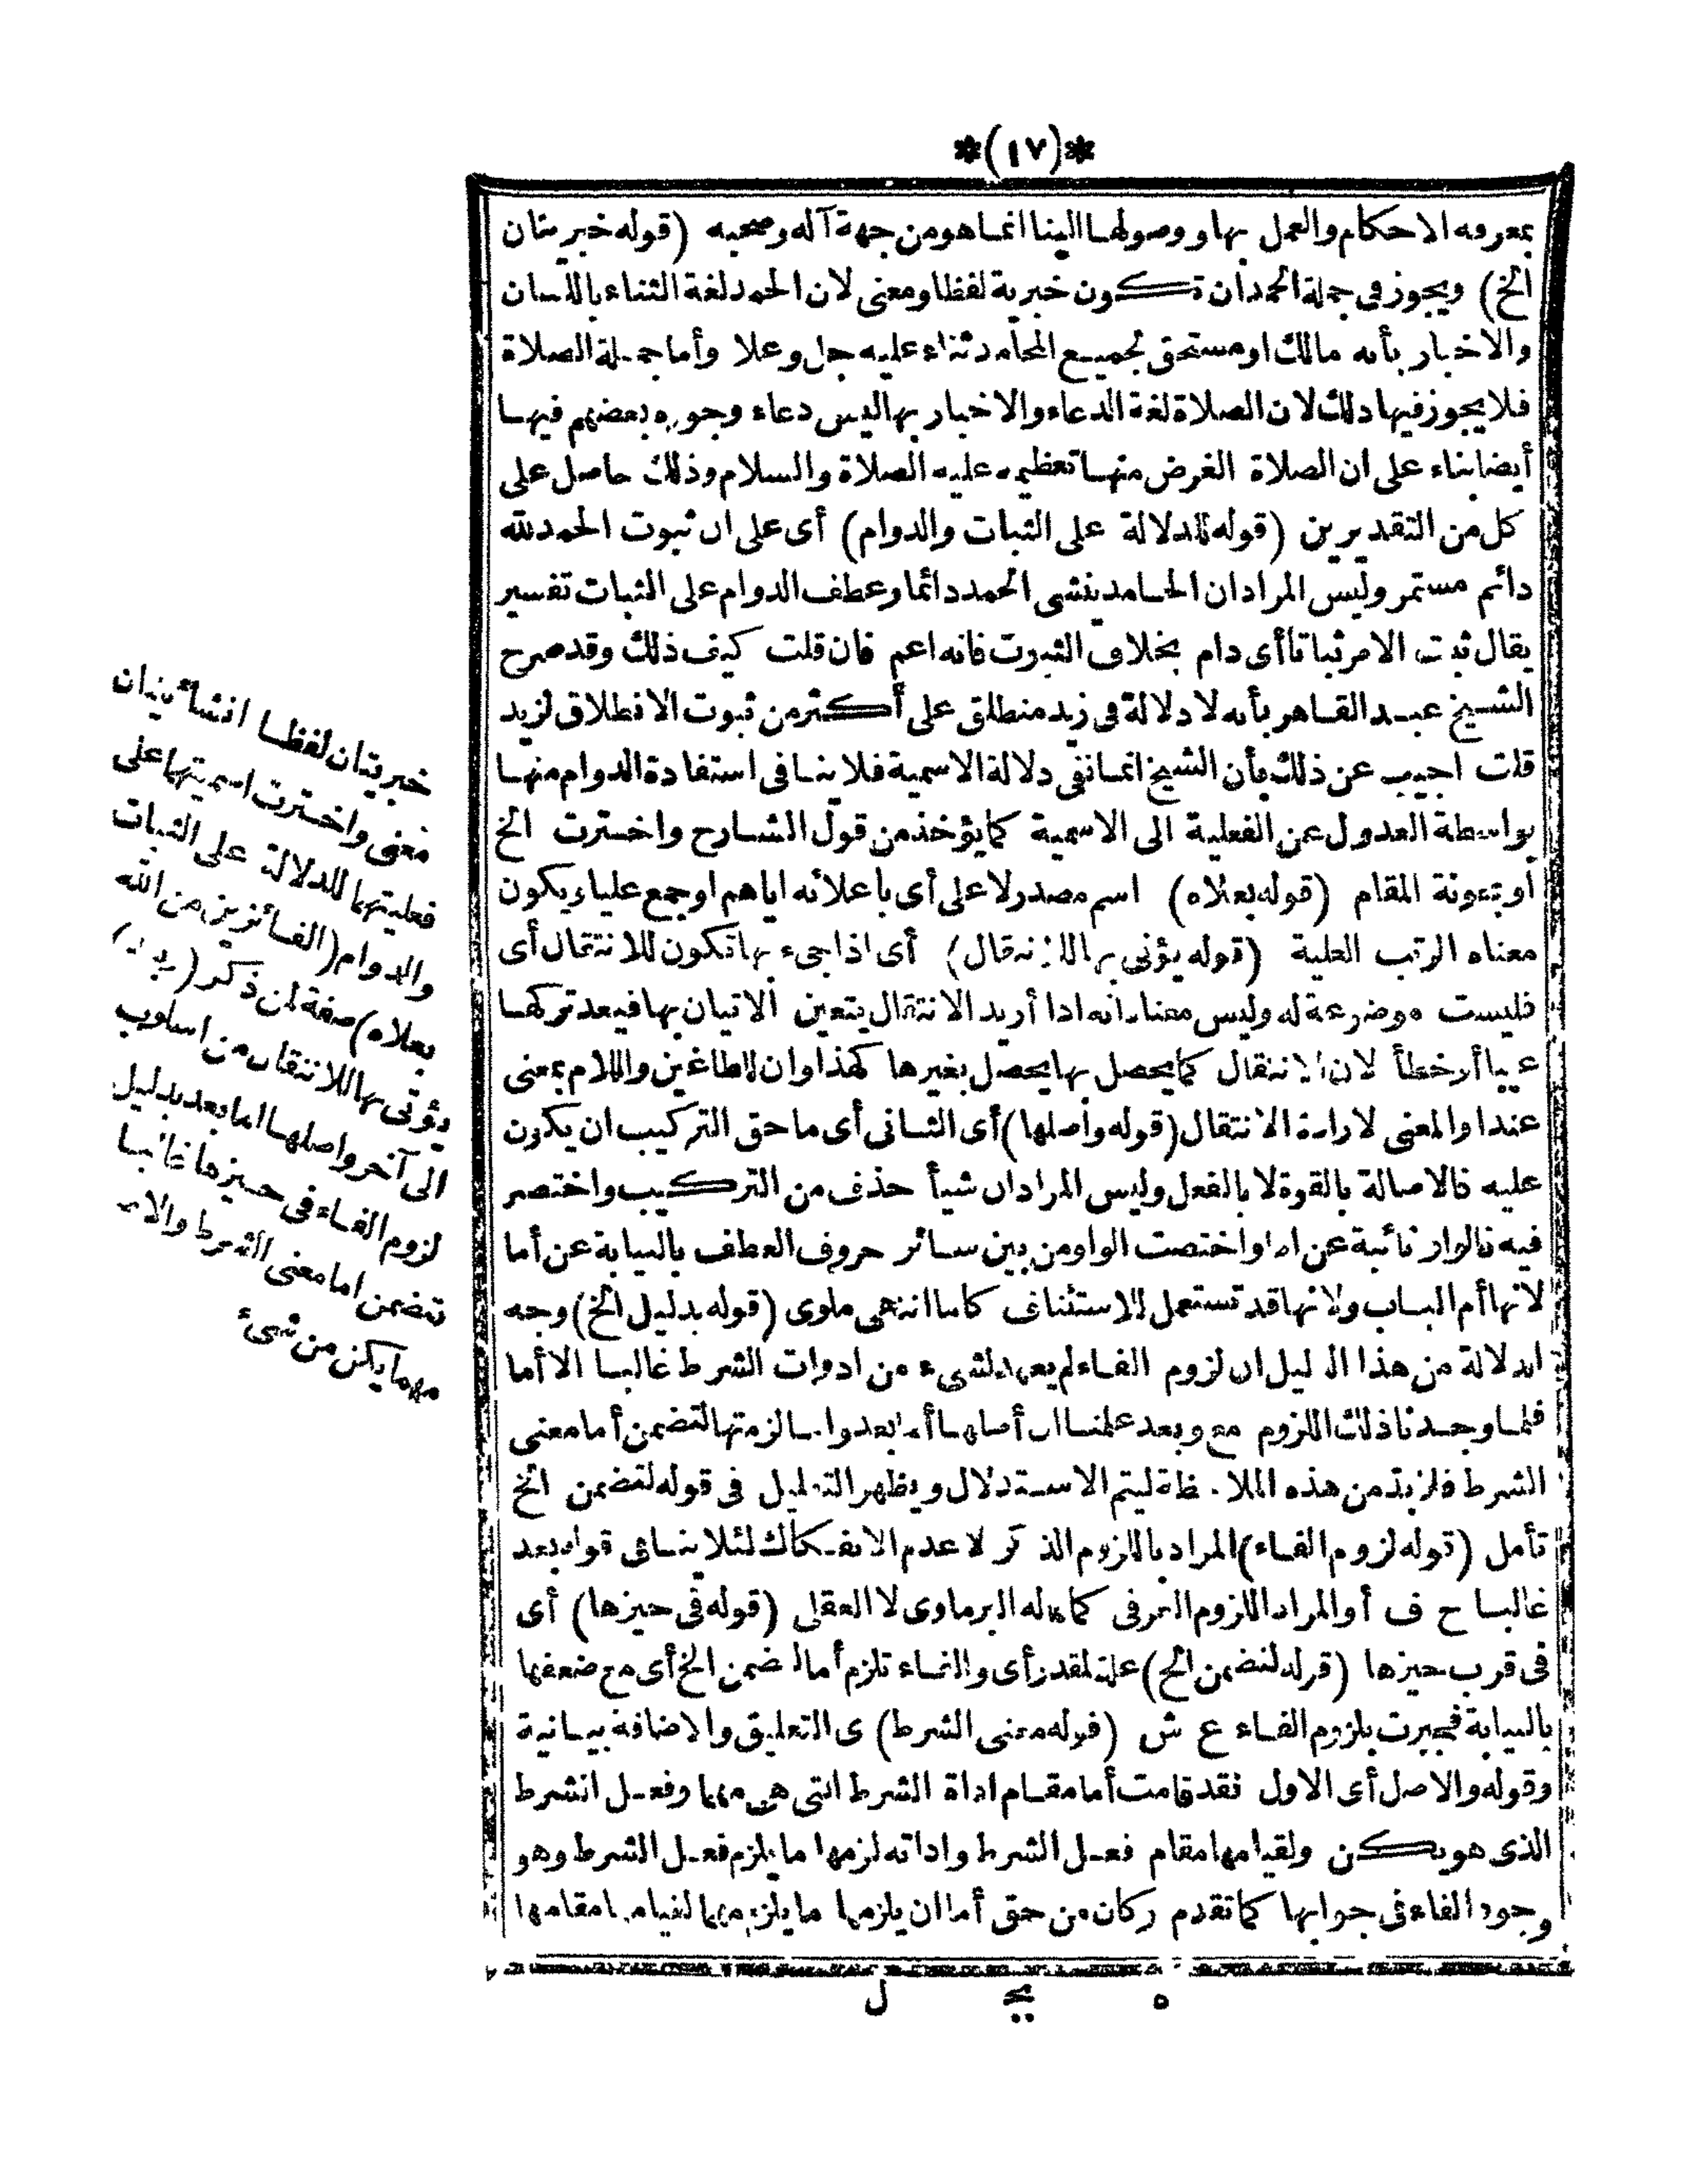 *(١٧)*
بمعرفة الاحكام والعمل بها ووصولها الينا انما هو من جهة آله وصحبه (قوله خبريتان
الخ) ويجوز فى جملة الحمد ان تكون خبرية لفظا ومعنى لان الحمد لغة الثناء باللسان
والاخبار بأنه مالك او مستحق لجميع المحامد ثناء عليه جل وعلا وأما جملة الصلاة
فلا يجوز فيها ذلك لان الصلاة لغة الدعاء والاخبار بها ليس دعاء وجوزه بعضهم فيها
أيضا بناء على ان الصلاة الغرض منها تعظيمه عليه الصلاة والسلام وذلك حاصل على
كل من التقديرين (قوله للدلالة على الثبات والدوام) أى على ان ثبوت الحمد لله
دائم مستمر وليس المراد ان الحامد ينشى الحمد دائما وعطف الدوام على الثبات تفسير
يقال ثبت الامر ثباتا أى دام بخلاف الثبوت فانه اعم فان قلت كيف ذلك وقد صرح
الشيخ عبد القاهر بأنه لا دلالة فى زيد منطلق على أكثر من ثبوت الانطلاق لزيد
قلت اجيب عن ذلك بأن الشيخ انما نفى دلالة الاسمية فلا ينافى استفادة الدوام منها
بواسطة العدول عن الفعلية الى الاسمية كما يؤخذ من قول الشارح واخترت الخ
او بمعونة المقام (قوله بعلاه) اسم مصدر لا على أى باعلائه اياهم او جمع علياء يكون
معناه الرتب العلية (قوله يؤتى بها للانتقال) أى اذا جىء بها تكون للانتقال أى
فليست موضوعة له وليس معناه انه اذا أريد الانتقال يتعين الاتيان بها فيعد تركها
عيبا أو خطأ لان الانتقال كما يحصل بها يحصل بغيرها كهذا وان للطاغين واللام بمعنى
عند او المعنى لارادة الانتقال (قوله واصلها) أى الثانى أى ما حق التركيب ان يكون
عليه فالاصالة بالقوة لا بالفعل وليس المراد ان شيأ حذف من التركيب واختصر
فيه فالواو نائبة عن اما واختصت الواو من بين سائر حروف العطف بالنيابة عن أما
لانها أم الباب ولانها قد تستعمل للاستئناف كاما انتهى ملوى (قوله بدليل الخ) وجه
الدلالة من هذا الدليل ان لزوم الفاء لم يعهد لشىء من ادوات الشرط غالبا الا أما
فلما وجدنا ذلك اللزوم مع وبعد علمنا ان أصلها أما بعد وانما لزمتها لتضمن أما معنى
الشرط فلا بد من هذه الملاحظة ليتم الاستدلال ويظهر التعليل فى قوله لتضمن الخ
تأمل (قوله لزوم الفاء) المراد باللزوم الذكر لا عدم الانفكاك لئلا ينافى قوله بعد
غالبا ح ف أو المراد اللزوم العرفى كما قاله البرماوى لا العقلى (قوله فى حيزها) أى
فى قرب حيزها (قوله لتضمن الخ) علة لمقدر أى والفاء تلزم أما لتضمن الخ أى مع ضعفها
بالنيابة فجبرت بلزوم الفاء ع ش (قوله معنى الشرط) أى التعليق والاضافة بيانية
وقوله والاصل أى الاول فقد قامت أما مقام اداة الشرط التى هى مهما وفعل الشرط
الذى هو يكن ولقيامها مقام فعل الشرط واداته لزمها ما يلزم فعل الشرط وهو
وجود الفاء فى جوابها كما تقدم وكان من حق أما ان يلزمها ما يلزم مهما لقيامها مقامها
خبريتان لفظا انشائيتان
معنى واخترت اسميتها على
فعليتها للدلالة على الثبات
والدوام (الفائزين من الله
بعلاه) صفة لمن ذكر (بعد)
يؤتى بها للانتقال من اسلوب
الى آخر واصلها اما بعد بدليل
لزوم الفاء فى حيزها غالبا
تضمن اما معنى الشرط والاصل
مهما يكن من شىء
٥ يج ل